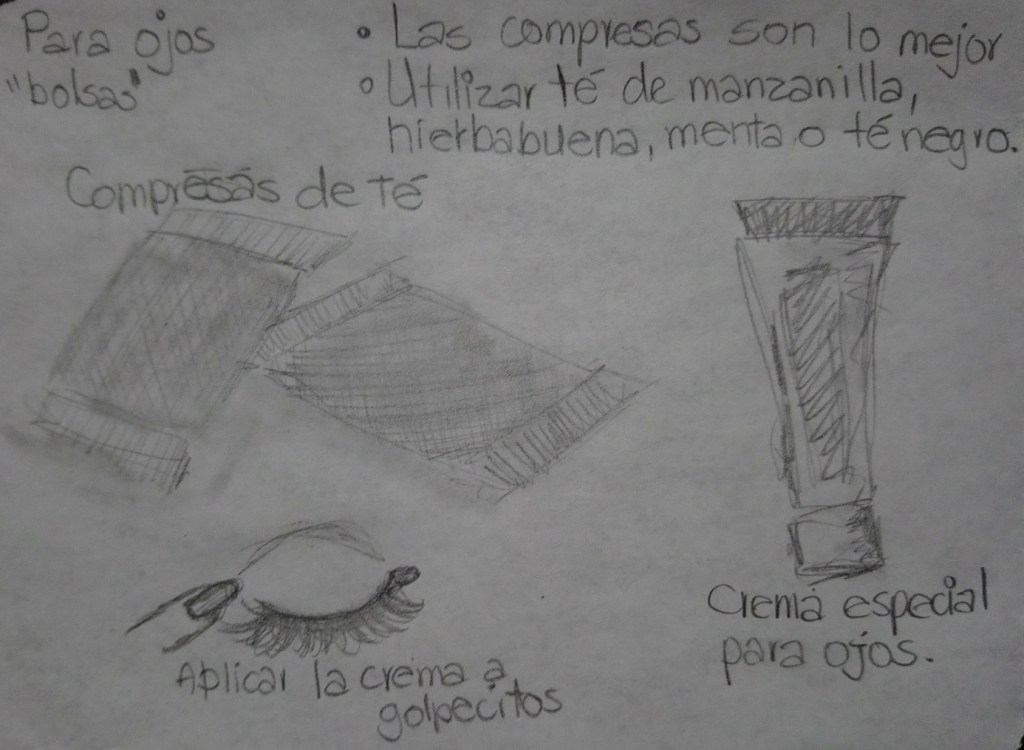 Para ojos
"bolsas"
• Las compresas son lo mejor
• Utilizar té de manzanilla,
hierbabuena, menta o té negro.
Compresas de té
Crema especial
para ojos.
Aplicar la crema a
golpecitos